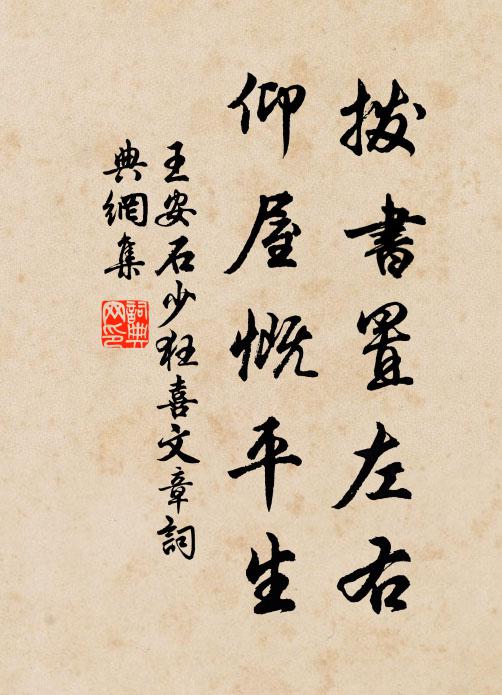 拨書置左右
仰屋慨平生
王安石少狂喜文章詞
典網集
詞典網印